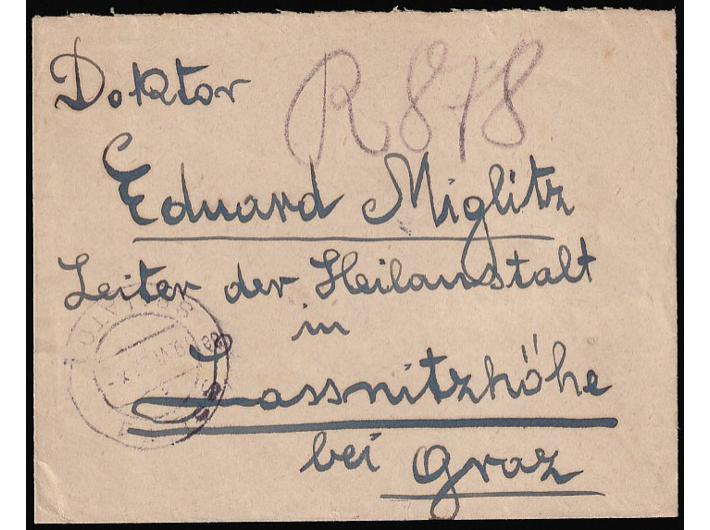 Doktor
R 878
Eduard Miglitz
Leiter der Heilanstalt
in
Lassnitzhöhe
bei Graz